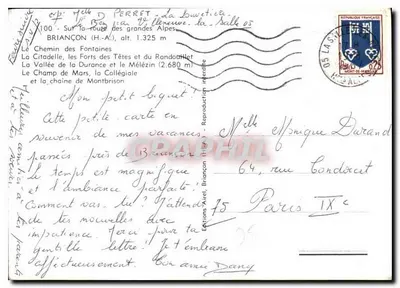 exp: Melle D. PERRET
100 - Sur la route des grandes Alpes
BRIANÇON (H.-A.), alt. 1.325 m
Le Chemin des Fontaines
La Citadelle, les Forts des Têtes et du Randouillet
La Vallée de la Durance et le Mélézin (2.680 m)
Le Champ de Mars, la Collégiale
et la chaîne de Montbrison
Mon petit biquet!
Cette petite carte en
souvenir de mes vacances
passées près de Briançon
le temps est magnifique
et l'ambiance parfaite!
Comment vas-tu? J'attends
de tes nouvelles avec
impatience. Merci pour ta
gentille lettre! Je t'embrasse
affectueusement. Ton amie Dany
Meilleures amitiés à tes parents
et à tes soeurs
Reproduction interdite
Editions Avril, Briançon
Melle Monique Durand
64, rue Condorcet
75 Paris IXe